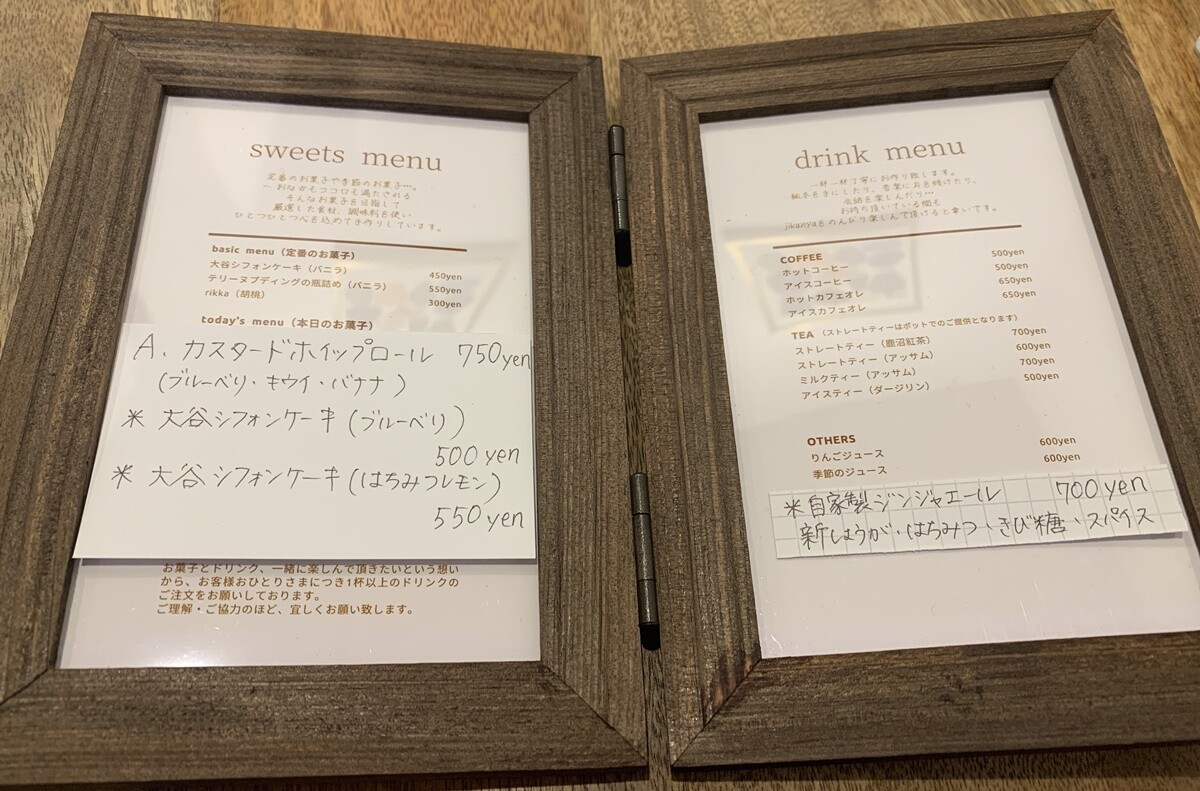 sweets menu
定番のお菓子や季節のお菓子…。
おなかもココロも満たされる
そんなお菓子を目指して
厳選した食材、調味料を使い
ひとつひとつ心を込めて手作りしています。
basic menu（定番のお菓子）
大谷シフォンケーキ（バニラ） 450yen
テリーヌプディングの瓶詰め（バニラ） 550yen
rikka（胡桃） 300yen
today's menu（本日のお菓子）
A. カスタードホイップロール 750yen
(ブルーベリ・キウイ・バナナ)
※ 大谷シフォンケーキ(ブルーベリ)
500yen
※ 大谷シフォンケーキ(はちみつレモン)
550yen
お菓子とドリンク、一緒に楽しんで頂きたいという想い
から、お客様おひとりさまにつき1杯以上のドリンクの
ご注文をお願いしております。
ご理解・ご協力のほど、宜しくお願い致します。
drink menu
一杯一杯丁寧にお作り致します。
絵本を手にしたり、音楽に耳を傾けたり、
会話を楽しんだり…
お待ち頂いている間も
jikanyaをのんびり楽しんで頂けると幸いです。
COFFEE
ホットコーヒー 500yen
アイスコーヒー 500yen
ホットカフェオレ 650yen
アイスカフェオレ 650yen
TEA （ストレートティーはポットでのご提供となります）
ストレートティー（鹿沼紅茶） 700yen
ストレートティー（アッサム） 600yen
ミルクティー（アッサム） 700yen
アイスティー（ダージリン） 500yen
OTHERS
りんごジュース 600yen
季節のジュース 600yen
※自家製ジンジャエール 700yen
新しょうが・はちみつ・きび糖・スパイス